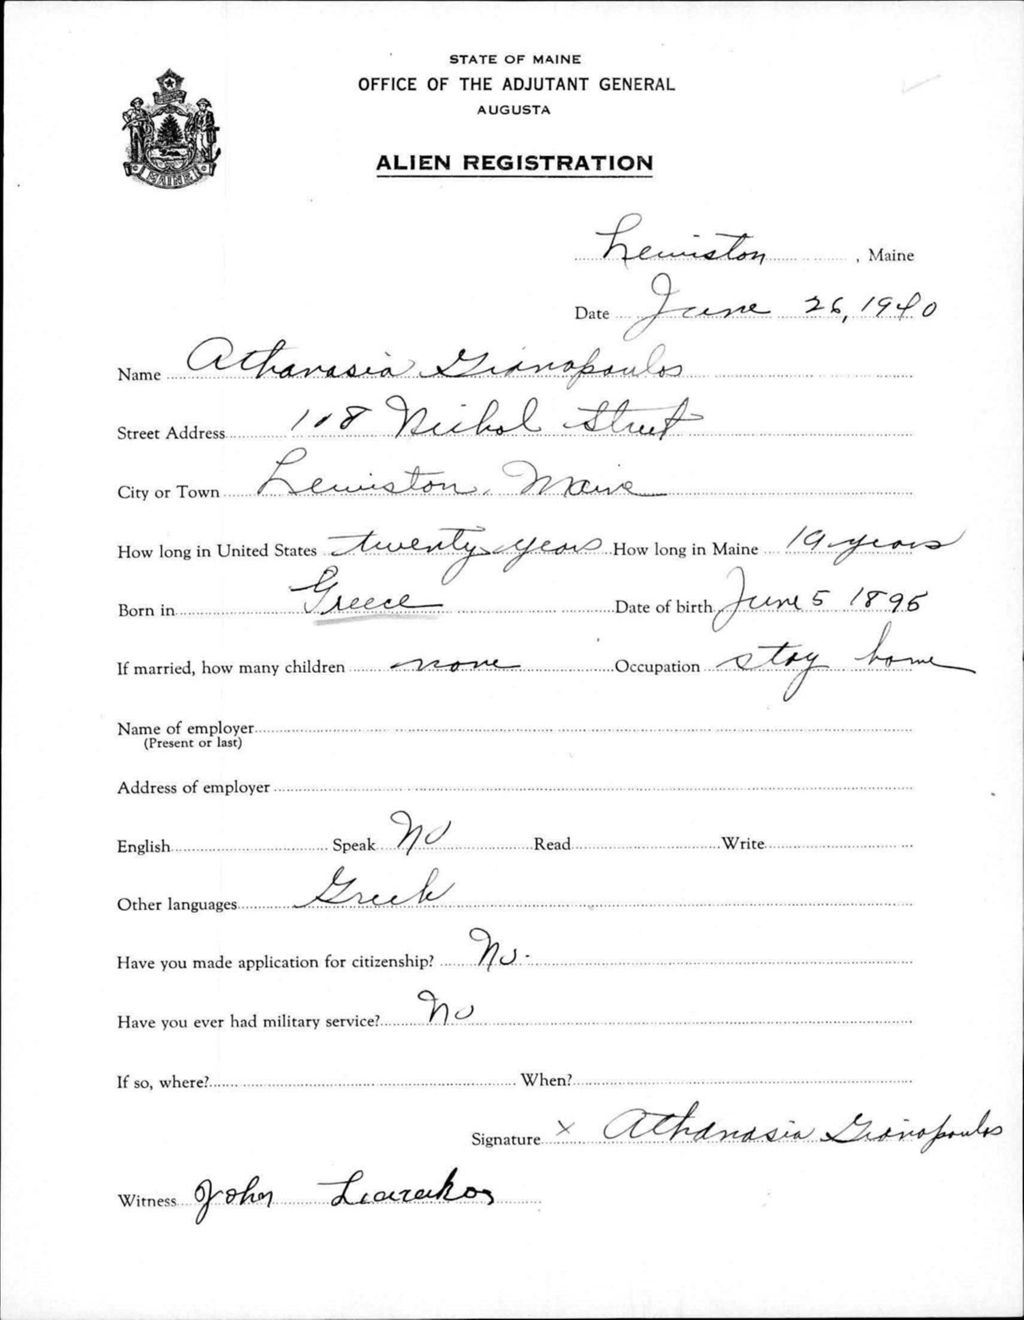 STATE OF MAINE
OFFICE OF THE ADJUTANT GENERAL
AUGUSTA
ALIEN REGISTRATION
MAINE
Lewiston, Maine
Date June 26, 1940
Name Athanasia Gianopoulos
Street Address 118 Nichol Street
City or Town Lewiston, Maine
How long in United States twenty years How long in Maine 19 years
Born in Greece Date of birth June 5 1895
If married, how many children none Occupation stay home
Name of employer
(Present or last)
Address of employer
English Speak No Read Write
Other languages Greek
Have you made application for citizenship? No.
Have you ever had military service? No
If so, where? When?
Signature x Athanasia Gianopoulos
Witness John Liarakos